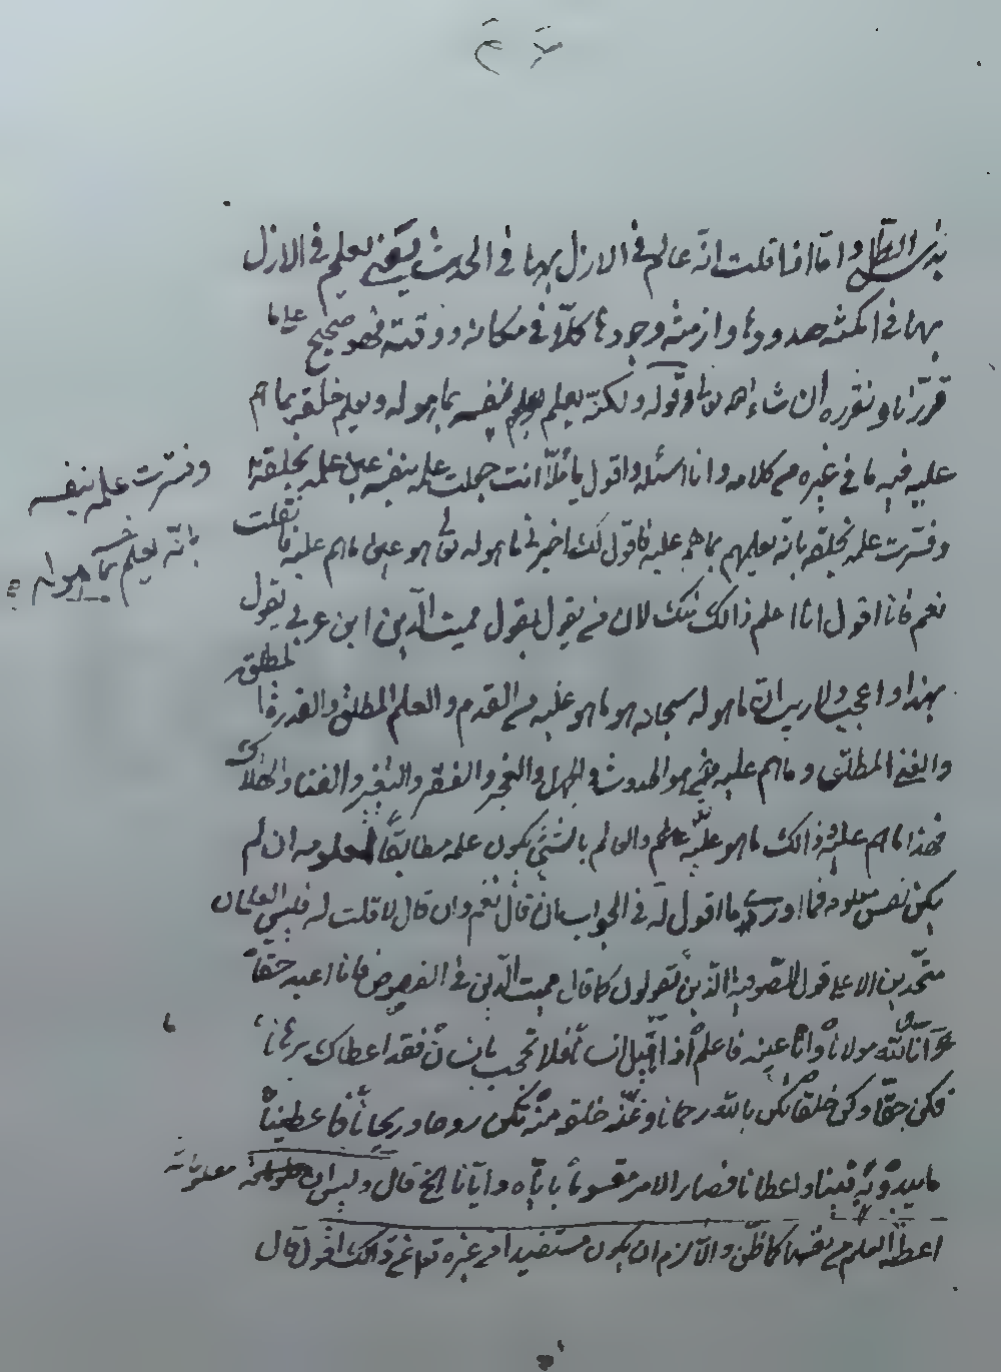 واما اذا قلت انه عالم فى الازل بها فى الحدث يعنى يعلم فى الازل
بها فى امكنة حدودها وازمنة وجودها كلا فى مكانه ووقته فهو صحيح على ما
قررنا ونقرره ان شاء الله تعالى وقوله ولكنه يعلم نفسه بما هو له ويعلم خلقه بما هم
عليه فيه ما فى غيره من كلامه وانا اسئله واقول يا ملا انت جعلت علمه بنفسه عين علمه بخلقه
وفسرت علمه بنفسه
بانه يعلم بما هو له
وفسرت علمه بخلقه بانه يعلمهم بما هم عليه فاقول لك اخبرنى ما هو له تع هو عين ما هم عليه فان قلت
نعم فانا اقول انا اعلم ذالك منك لان من يقول بقول مميت الدين ابن عربى يقول
بهذا واعجب ولا ريب ان ما هو له سبحانه هو ما هو عليه من القدم والعلم المطلق والقدرة المطلقة
والغنى المطلق وما هم عليه هو الحدوث والجهل والعجز والفقر والتغير والفناء والهلاك
فهذا ما هم عليه وذالك ما هو عليه والعالم بالشئ يكون علمه مطابقا لمعلومه ان لم
يكن نفس معلومه فما ادرى ما اقول له فى الجواب فان قال نعم وان قال لا قلت له فليس العلمان
متحدين الا على قول الصوفية الذين يقولون كما قال مميت الدين فى الفصوص فانا اعبد حقا
وانا لله مولانا وانا عينه فاعلم اذا قيل انسانا فلا تحجب بانسان فقد اعطاك برهانا
فكن حقا وكن خلقا تكن بالله رحمانا وغذ خلقه منه تكن روحا وريحانا فاعطيناه
ما يبدو به فينا واعطانا فصار الامر مقسوما باياه وايانا الخ قال وليس ان معلوماته
اعطته العلم من نفسها كما ظن والا لزم ان يكون مستفيدا من غيره تع عن ذالك اقول قال